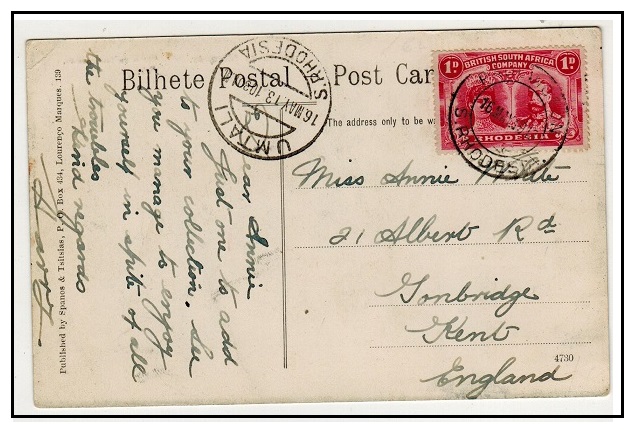 Bilhete Postal
Post Car
The address only to be w
1D
BRITISH SOUTH AFRICA
COMPANY
1D
RHODESIA
UMTALI
16 MAY 13
S. RHODESIA
S. RHODESIA
Dear Annie
Just one to add
to your collection. See
you manage to enjoy
yourself in spite of all
the troubles
Kind regards
Miss Annie
21 Albert Rd
Tonbridge
Kent
England
4730
Published by Spanos & Tsitsias, P. O. Box 434, Lourenço Marques. 139